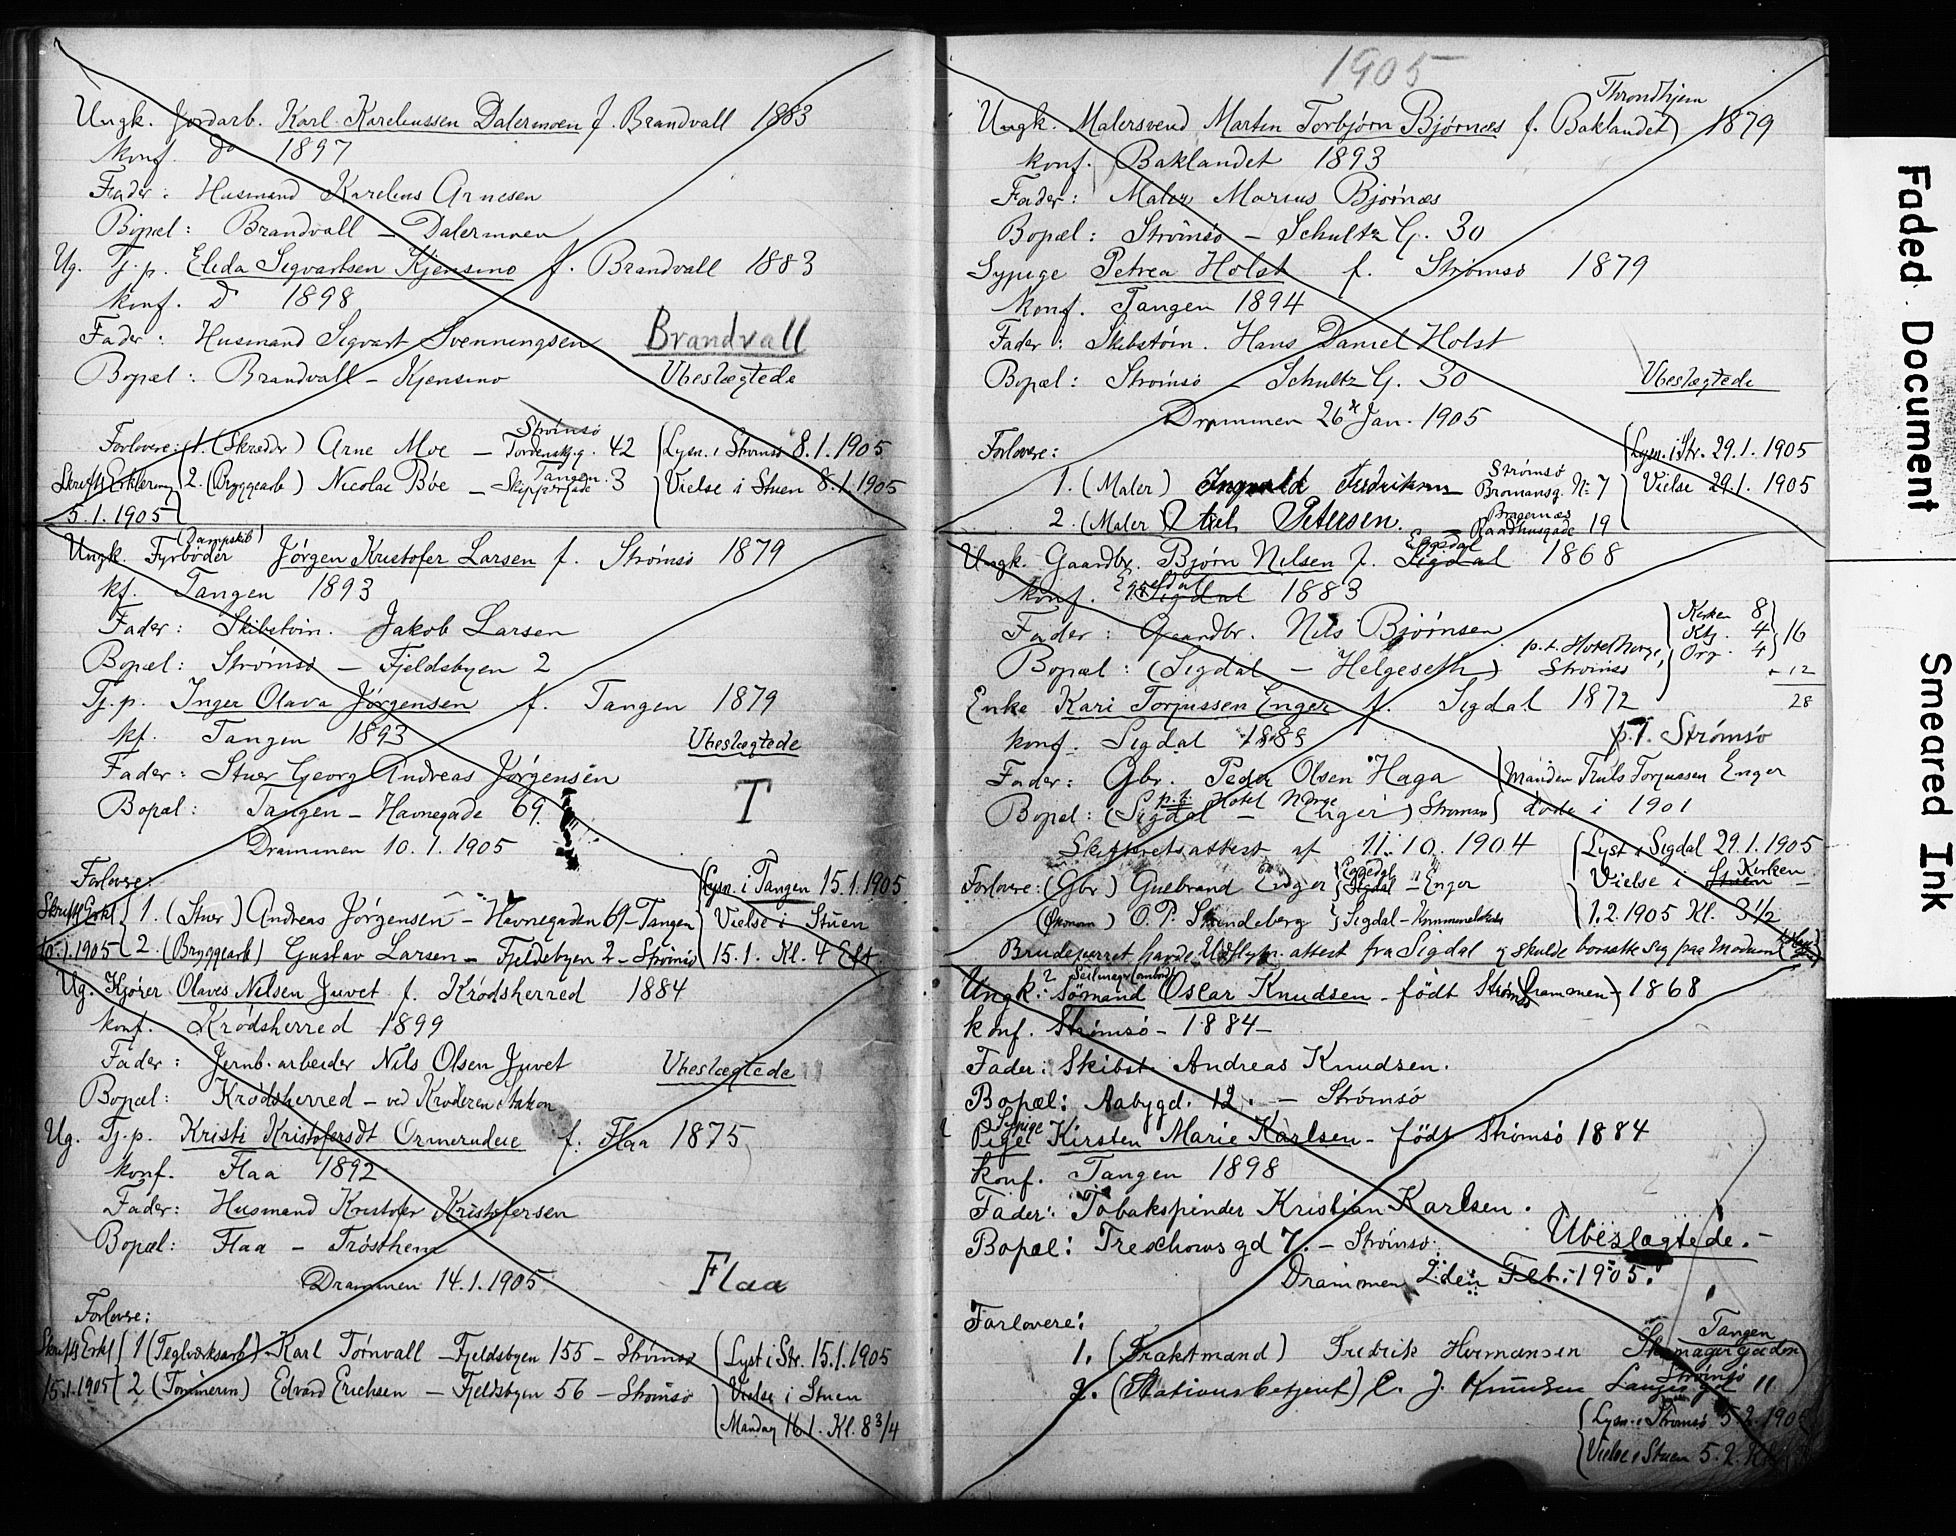 Ungk. Jordarb. Karl Kareliussen Dalermoen f. Brandvall 1883
konf. do 1897
Fader: Husmand Karelius Arnesen
Bopæl: Brandvall - Dalermoen
Ug. Tj.p. Elida Sigvartsen Kjensmo f. Brandvall 1883
konf. do 1898
Fader: Husmand Sigvart Svenningsen
Brandvall
Bopæl: Brandvall - Kjensmo
Ubeslægtede
Strømsø
Forlovere: 1. (Skrædder) Arne Moe - Tordenskjg. 42 Lysn. i Strømsø 8.1.1905
Tangen
Skriftl. Erklæring 2. (Bryggearb) Nicolai Bøe - 3 Vielse i Stuen 8.1.1905
5.1.1905
(Dampskib)
Ungk. Fyrbøder Jørgen Kristofer Larsen f. Strømsø 1879
kf. Tangen 1893
Fader: Skibstøm. Jakob Larsen
Bopæl: Strømsø - Fjeldsbyen 2
Tj.p. Inger Olava Jørgensen f. Tangen 1879
kf. Tangen 1893
Ubeslægtede
Fader: Stuer Georg Andreas Jørgensen
T
Bopæl: Tangen - Havnegade 69.
Drammen 10.1.1905
Forlovere:
Lysn. i Tangen 15.1.1905
Skriftl Erkl 1. (Stuer) Andreas Jørgensen - Havnegaden 69 - Tangen Vielse i Stuen
10.1.1905 2. (Bryggearb) Gustav Larsen - Fjeldsbyen 2 - Strømsø 15.1. Kl. 4 Eft.
Ug. Kjører Olaves Nilsen Juvet f. Krødsherred 1884
konf. Krødsherred 1899
Fader: Jernb. arbeider Nils Olsen Juvet
Ubeslægtede
Bopæl: Krødsherred - ved Krøderen station
Ug. Tj.p. Kristi Kristofersdt Ormerudeie f. Flaa 1875
konf. Flaa 1892
Fader: Husmand Kristofer Kristofersen
Bopæl: Flaa - Trøsthem
Drammen 14.1.1905
Flaa
Forlovere:
Skriftl Erkl 1 (Teglværksarb) Karl Tørnvall - Fjeldsbyen 155 - Strømsø Lyst i Str. 15.1.1905
15.1.1905 2 (Tømmerm) Edvard Erichsen - Fjeldsbyen 56 - Strømsø Vielse i Stuen
Mandag 16.1. Kl. 8 3/4
1905
Throndhjem
Ungk. Malersvend Martin Torbjørn Bjørnæs f. Baklandet) 1879
konf. Baklandet 1893
Fader: Maler Marius Bjørnæs
Bopæl: Strømsø - Schultz G. 30
Sypige Petrea Holst f. Strømsø 1879
Konf. Tangen 1894
Fader: Skibstøm. Hans Daniel Holst
Bopæl: Strømsø - Schultz G. 30
Ubeslægtede
Drammen 26 Jan. 1905
Forlovere:
Lysn. i Str. 29.1.1905
Strømsø
1. (Maler) Ingvald Fredriksen Bromansg. No 7 Vielse 29.1.1905
Bragernæs
2. (Maler) Axel Petersen. Raadhusgade 19
Eggedal
Ungk. Gaardbr. Bjørn Nilsen f. Sigdal 1868
Eggedal
konf. Sigdal 1883
Fader: Gaardbr. Nils Bjørnsen
Kirken 8
Klj. 4
Org. 4
16
+ 12
28
p.t. Hotel Norge,
Bopæl: (Sigdal - Helgeseth) Strømsø
Enke Kari Torjussen Enger f. Sigdal 1872
p.t. Strømsø
konf. Sigdal 1889
Fader: Gbr. Peder Olsen Haga
Manden Truls Torjussen Enger
p.t. Hotel Norge
Bopæl: (Sigdal - Enger) Strømsø døde i 1901
Skifteretsattest af 11.10.1904
Lyst i Sigdal 29.1.1905
Forlovere: (Gbr) Guebrand Enger Eggedal Sigdal - Enger
Vielse i Stuen Kirken
(Økonom) O. P. Strindeberg Sigdal - Kommunelokale
1.2.1905 Kl. 3 1/2
Brudeparret havde Udflytn. attest fra Sigdal og skulde bosætte sig paa Modum
Seilmager(ombord)
Ungk: Sømand Oscar Knudsen - født Strømsø Drammen - 1868
konf. Strømsø - 1884 -
Fader: Skibst. Andreas Knudsen.
Bopæl: Aabygd. 12. - Strømsø
Sypige
Pige Kirsten Marie Karlsen - født Strømsø 1884
konf. Tangen 1898
Fader: Tobakspinder Kristian Karlsen.
Bopæl: Treschows gd 7. - Strømsø.
Ubeslægtede. -
Drammen 2. den Feb: 1905.
Forlovere:
Tangen
1. (Fraktmand) Fredrik Hermansen Skomagergaden
Strømsø
2. (Stationsbetjent) C. J. Knudsen Langes gd 11
Lysn. i Strømsø 5.2.1905
Vielse i Stuen 5.2. Kl.
Faded Document
Smeared Ink